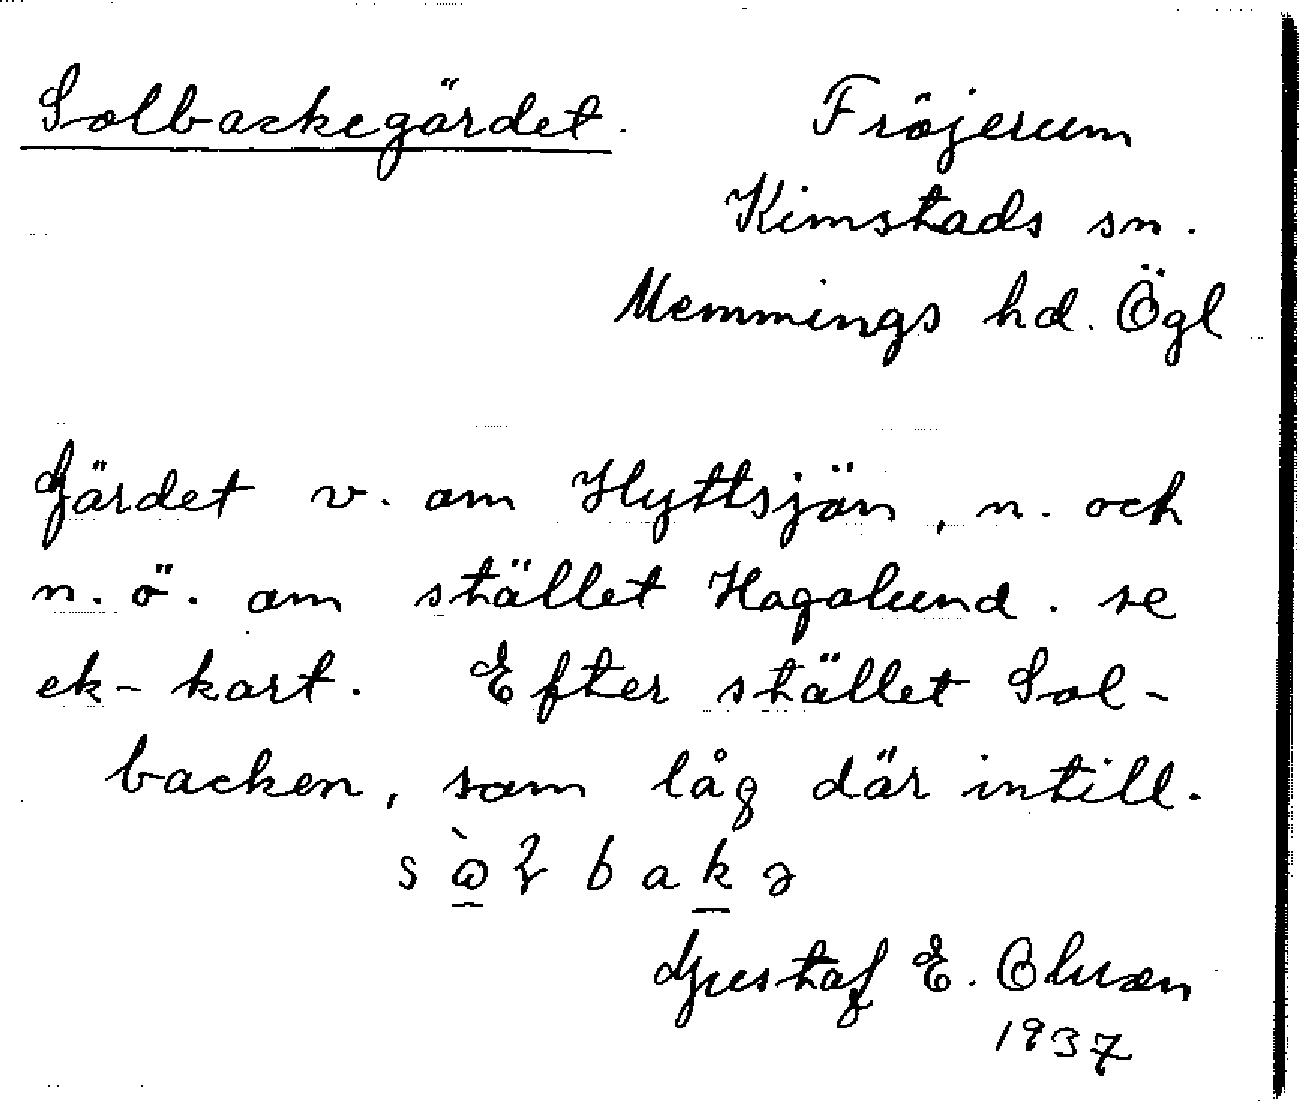 Solbackegärdet.
Fröjerum
Kimstads sn.
Memmings hd. Ögl
Gärdet v. om Hyttsjön, n. och
n.ö. om stället Hagalund. se
ek-kart. Efter stället Sol-
backen, som låg där intill.
Gustaf E. Olsson
1937